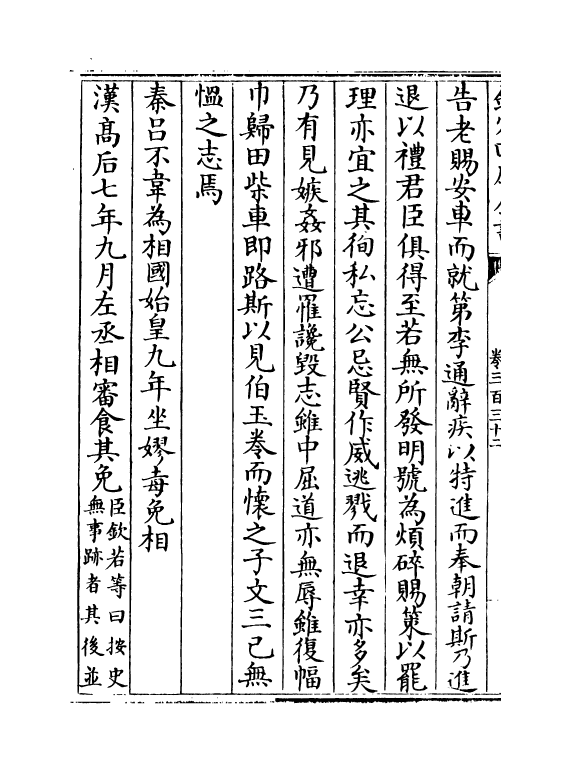 卷三百三十二
告老賜安車而就第李通辭疾以特進而奉朝請斯乃進
退以禮君臣俱得至若無所發明號為煩碎賜策以罷
理亦宜之其徇私忘公忌賢作威逃戮而退幸亦多矣
乃有見嫉姦邪遭罹讒毀志雖中屈道亦無辱雖復幅
巾歸田柴車即路斯以見伯玉卷而懷之子文三已無
慍之志焉
秦呂不韋為相國始皇九年坐嫪毐免相
漢高后七年九月左丞相審食其免臣欽若等曰按史
無事跡者其後並